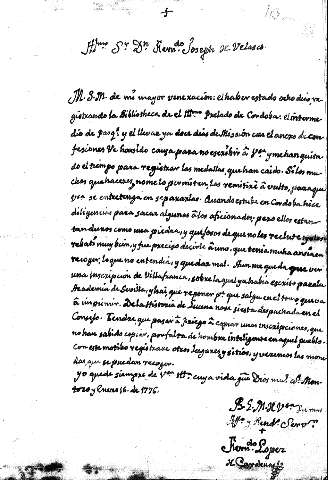 Sr. Dn. Fern.do Joseph de Velasco
M.S.M. de mi mayor veneracion: el haber estado ocho dias re
gistrando la Bibliotheca de el Prelado de Cordoba: el interme
dio de y el llevar ya doce dias de Mission con el anexo de con
fesiones Ve ha sido causa para no escribir â y me han quita
do el tiempo para registrar las medallas que han caido. Si los mu
chos quehaceres, no me lo permiten, las remitirè a vulto, para que
se entretenga en separarlas. Quando estube en Cordoba hice
diligencias para sacar algunas â los aficionados; pero ellos estan
tan duros como una piedra, y quejosos de que no les
muy bien, y fue preciso decirle â uno, que tenia mucha ansia en
recoger, lo que no entendia; y quedar mal. Aun me queda que ver
una inscripcion de Villafranca, sobre la que ya habia escrito para la
Academia de Sevilla; y hai que reponer que salga en el tomo que va
â imprimir. De la Historia de Lucena no se si esta despachada en el
Consejo. Tendre que pasar â Priego â copiar unas inscripciones, que
no han sabido copiar, por falta de hombre inteligente en aquel pueblo.
con este motibo registrare otros lugares y sitios, y veremos las mone
das que se puedan recoger.
yo quede siempre de cuya vida gue Dios mul. as. Mon
toro y Enero 16. de 1776.
B.L.M. de
Aff.o y Rend.o Serv.or
Fern.do Lopez
de Cardenas